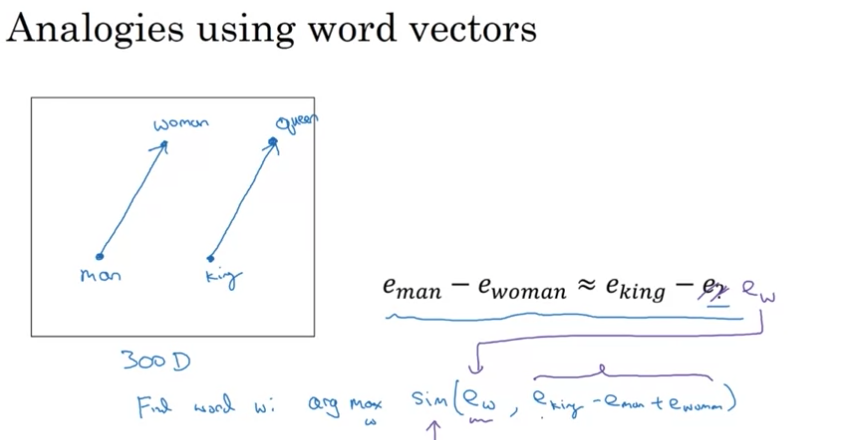 Analogies using word vectors
woman
queen
man
king
e_man − e_woman ≈ e_king − e_? e_w
300 D
Find word w: arg max_w sim(e_w, e_king − e_man + e_woman)